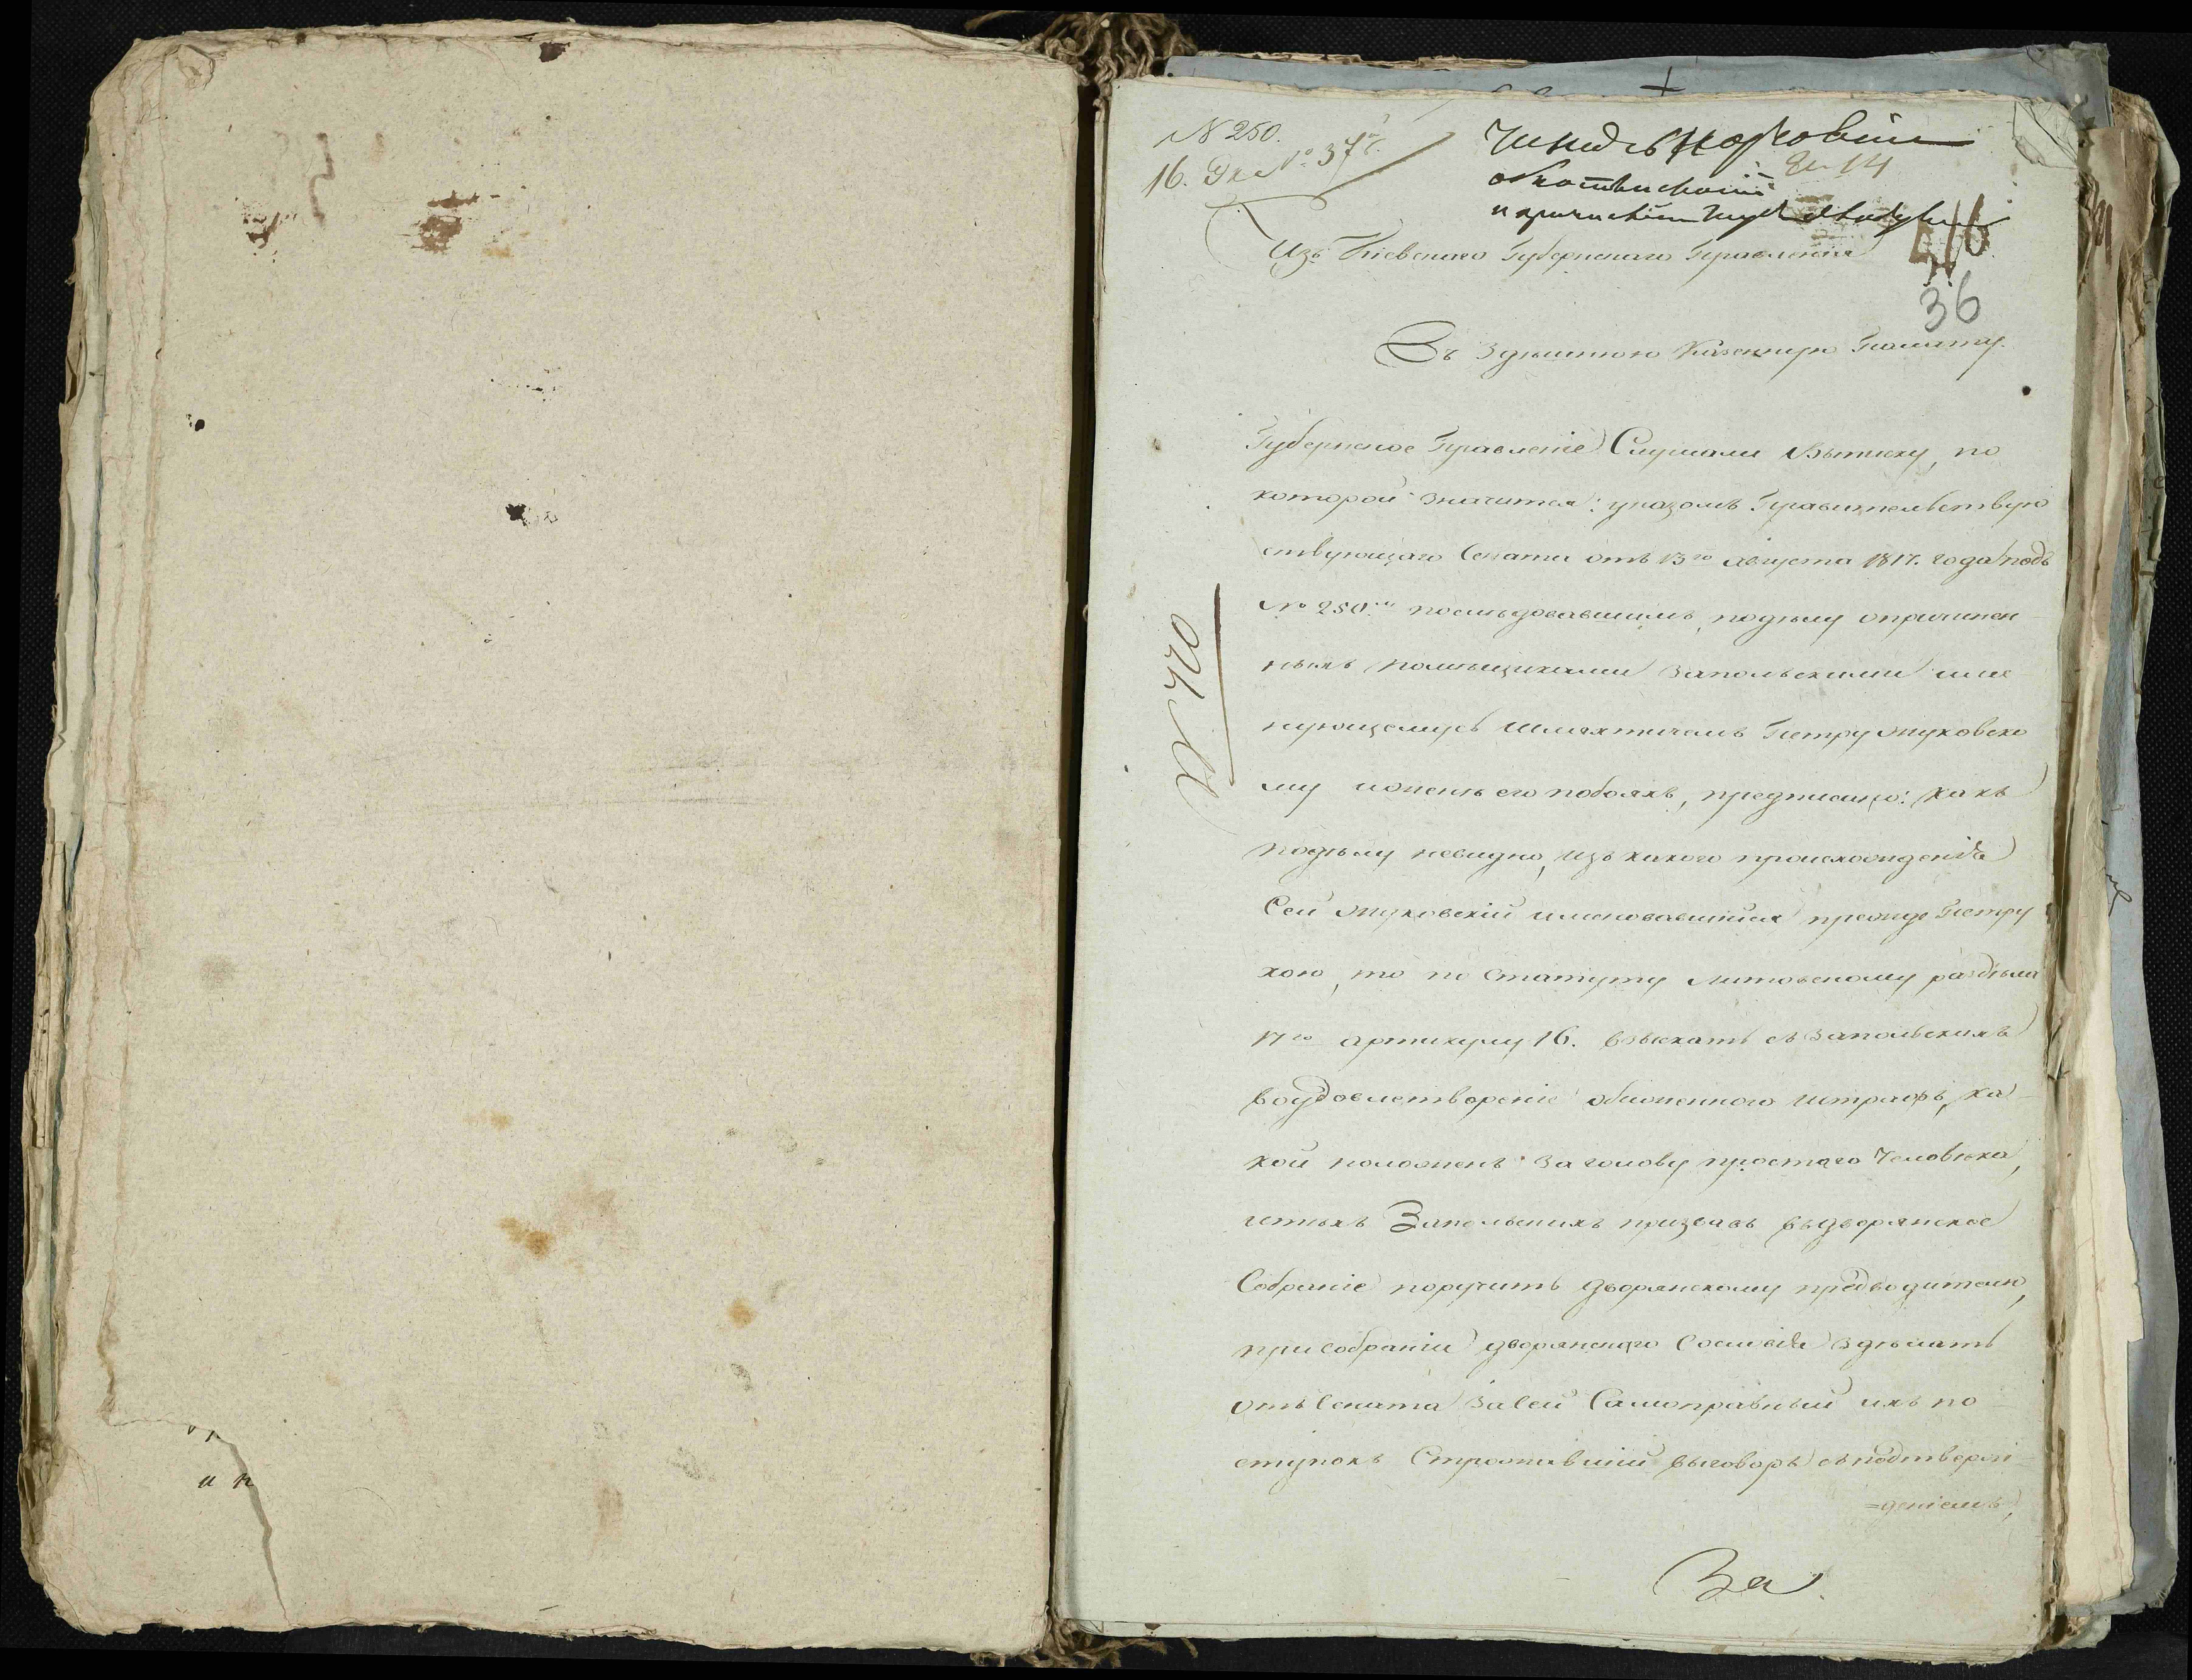 N 250.
16. Дек № 37
416
36
Изъ Киевского Губернскаго Правления
Въ Здешнюю Казенную Палату.
Губернское Правленіе Слушали Выписку, по
которой значится: указомъ Правительствую
ствующаго Сената отъ 13го августа 1817. года подъ
№ 250мъ последовавшимъ, поделу опричинен
ныхъ помещиками Запольскими име
нующемусь шляхтичемъ Петру Жуковско
му ижене его побояхъ, предписано: какъ
поделу невидно, изъ какого происхожденія
Сей Жуковскій именовавшийся прежде Петру
хою, то по Статуту Литовскому раздела
11го артикулу 16. взыскать съ Запольскихъ
воудовлетвореніе обиженного штрафъ, ка-
кой положенъ за голову простаго Человека,
сихъ Запольскихъ призвавъ въдворянское
Собраніе поручить дворянскому предводителю,
присобраніи дворянскаго Сословія зделать
отъ Сената за сей Самоправный ихъ по-
ступокъ Строжайшій выговоръ съподтверж-
=деніемъ,
За
N 770
и п